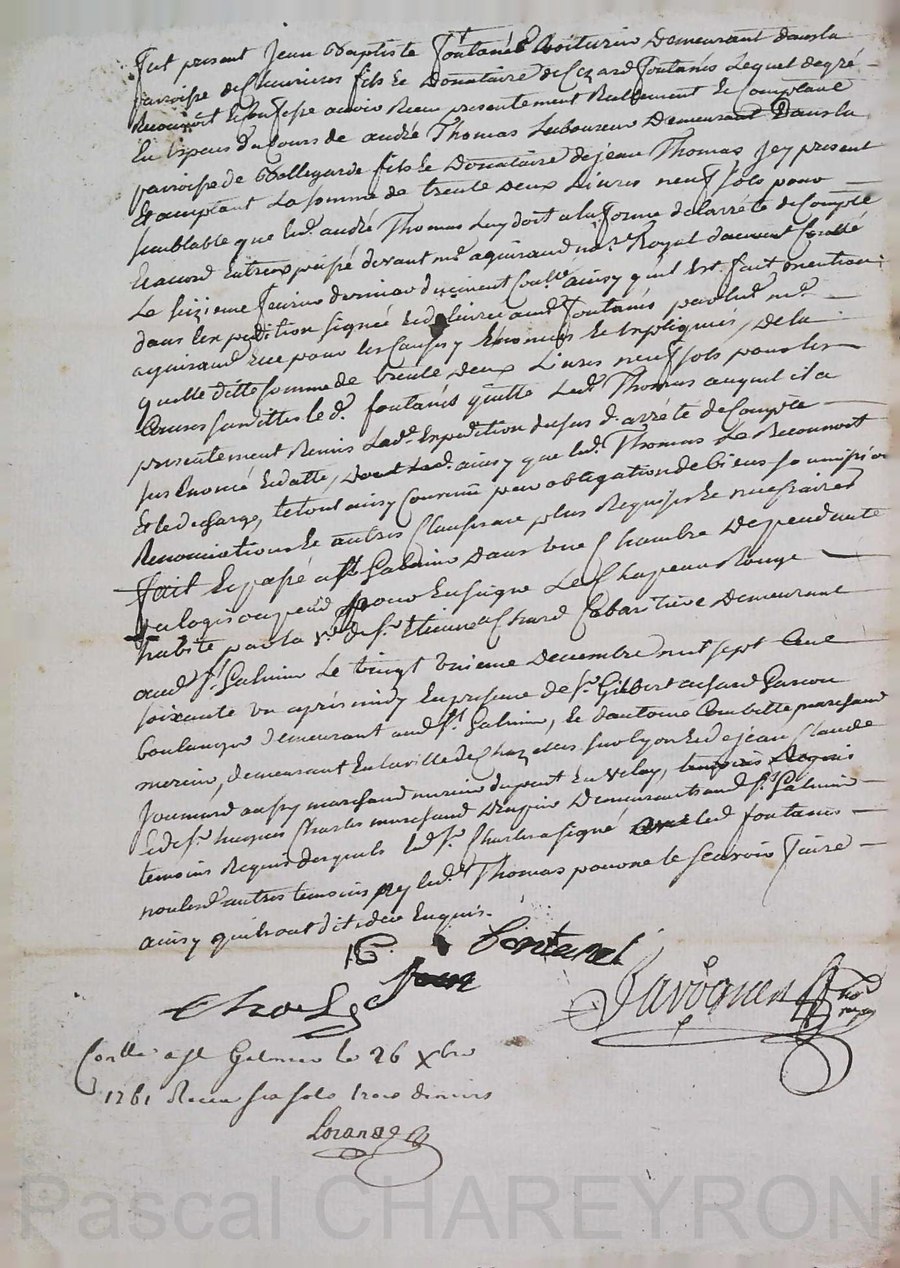 fut present Jean Baptiste fontanés voiturier demeurant dans la
parroisse de Chevrieres fils et donataire de Cezard fontanés lequel de gré
Reconnoit et confesse avoir Receu presentement Reellement et Comptant
En Espece du Cours de andré Thomas Laboureur demeurant dans la
parroisse de Bellegarde fils et donataire de jean Thomas jcy present
Et acceptant La somme de trente deux Livres neuf sols pour
semblable que led. andré Thomas Luy doit a la forme de larrété de Compte
Et acord Entreux passé devant me aquiraud no.re Royal duement Controllé
Le seizieme fevrier dernier ainsy quil Est fait mention
dans lexpedition signée Et delivrée aud. fontanés par led. me
aquiraud Et ce pour les Causes y Enoncés Et Expliquées, de la
quelle ditte somme de trente deux Livres neuf sols pour les
Causes susdittes led. fontanés quitte led. Thomas auquel il a
presentement Remis lad. Expedition dud. arrété de Compte
sus Enoncé Et datté, ainsy que led. Thomas Le Reconnoit
Et led. charge, le tout ainsy Convenu pour obligation de biens soumission
Renonciations Et autres Clauses plus Requises Et necessaires
fait Et passé a St Galmier dans une Chambre dependante
du logis ou pend pour Enseigne Le Chapeau Rouge
habité par la ve de Sr Etienne achard Cabaretiere demeurant
aud. St Galmier Le vingt unieme decembre mil sept Cent
soixante un aprés midy En presence de Sr Gilbert achard garcon
boulanger demeurant aud. St Galmier, Et dantoine Combette marchand
mercier, demeurant En la ville de Chazelles sur Lyon Et de jean Claude
Joumard aussy marchand mercier du puit En velay,
Et de Sr hugues Charles marchand demeurant aud. St Galmier
temoins Requis desquels led. Sr Charles a signé avec led. fontanés
non les autres temoins ny led. Thomas pour ne le scavoir faire
ainsy quils ont dit de ce Enquis.
fontanés
Charles
Contlé a St Galmier le 26 Xbre
1761 Receu six sols trois deniers
Pascal CHAREYRON